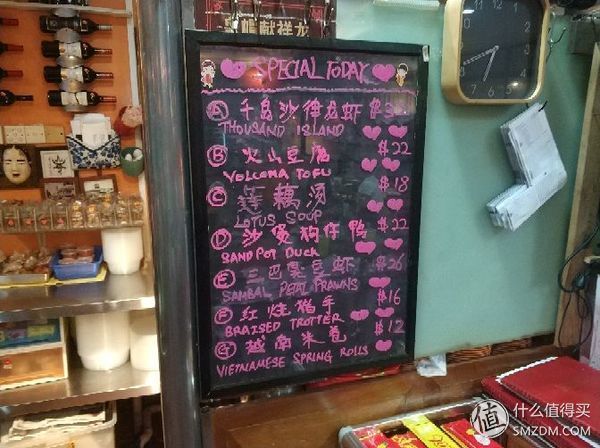 SPECIAL TODAY
A 千岛沙律龙虾
THOUSAND ISLAND
B 火山豆腐 $22
VOLCANA TOFU
C 莲藕汤 $18
LOTUS SOUP
D 沙煲狗仔鸭 $22
SAND POT DUCK
E 三巴臭豆虾 $26
SAMBAL PETAI PRAWNS
F 红烧猪手 $16
BRAISED TROTTER
G 越南米卷 $12
VIETNAMESE SPRING ROLLS
值 什么值得买
SMZDM.COM